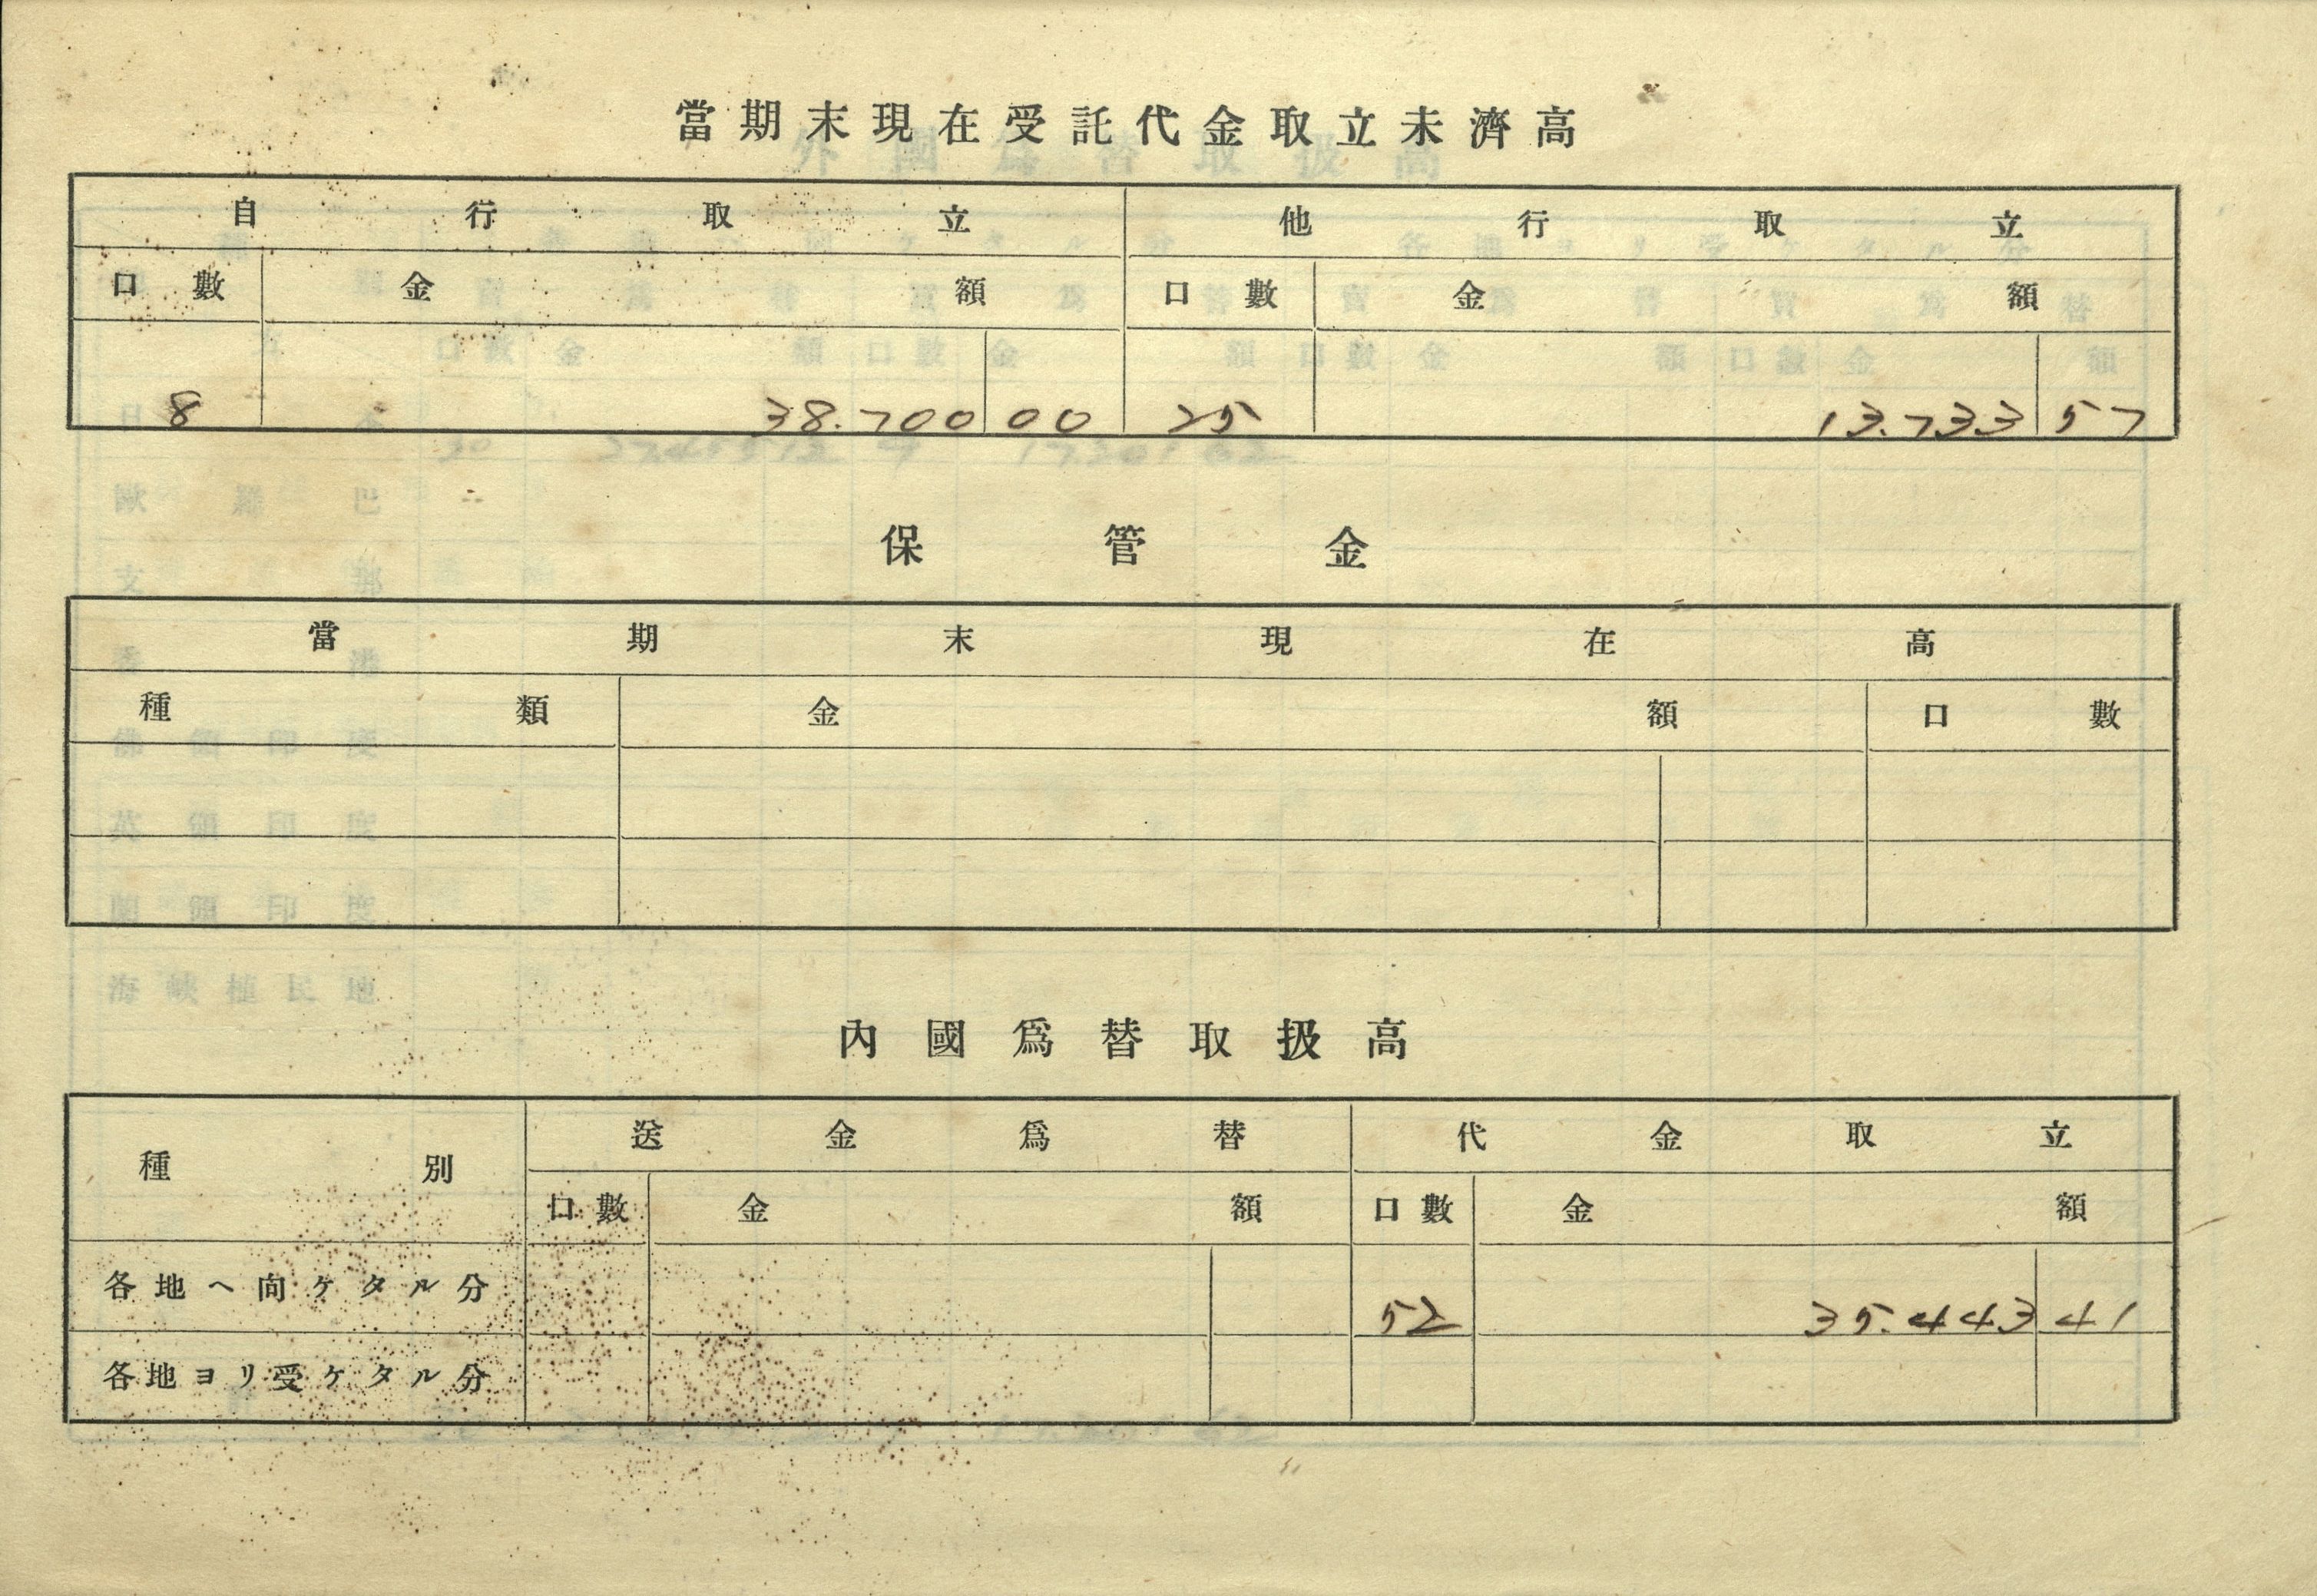 當期末現在受託代金取立未濟高
自行取立 他行取立
口數 金額 口數 金額
8 38.700 00 25 13.733 57
保管金
當期末現在高
種類 金額 口數
內國爲替取扱高
種別 送金爲替 代金取立
口數 金額 口數 金額
各地ヘ向ケタル分 52 35.443 41
各地ヨリ受ケタル分